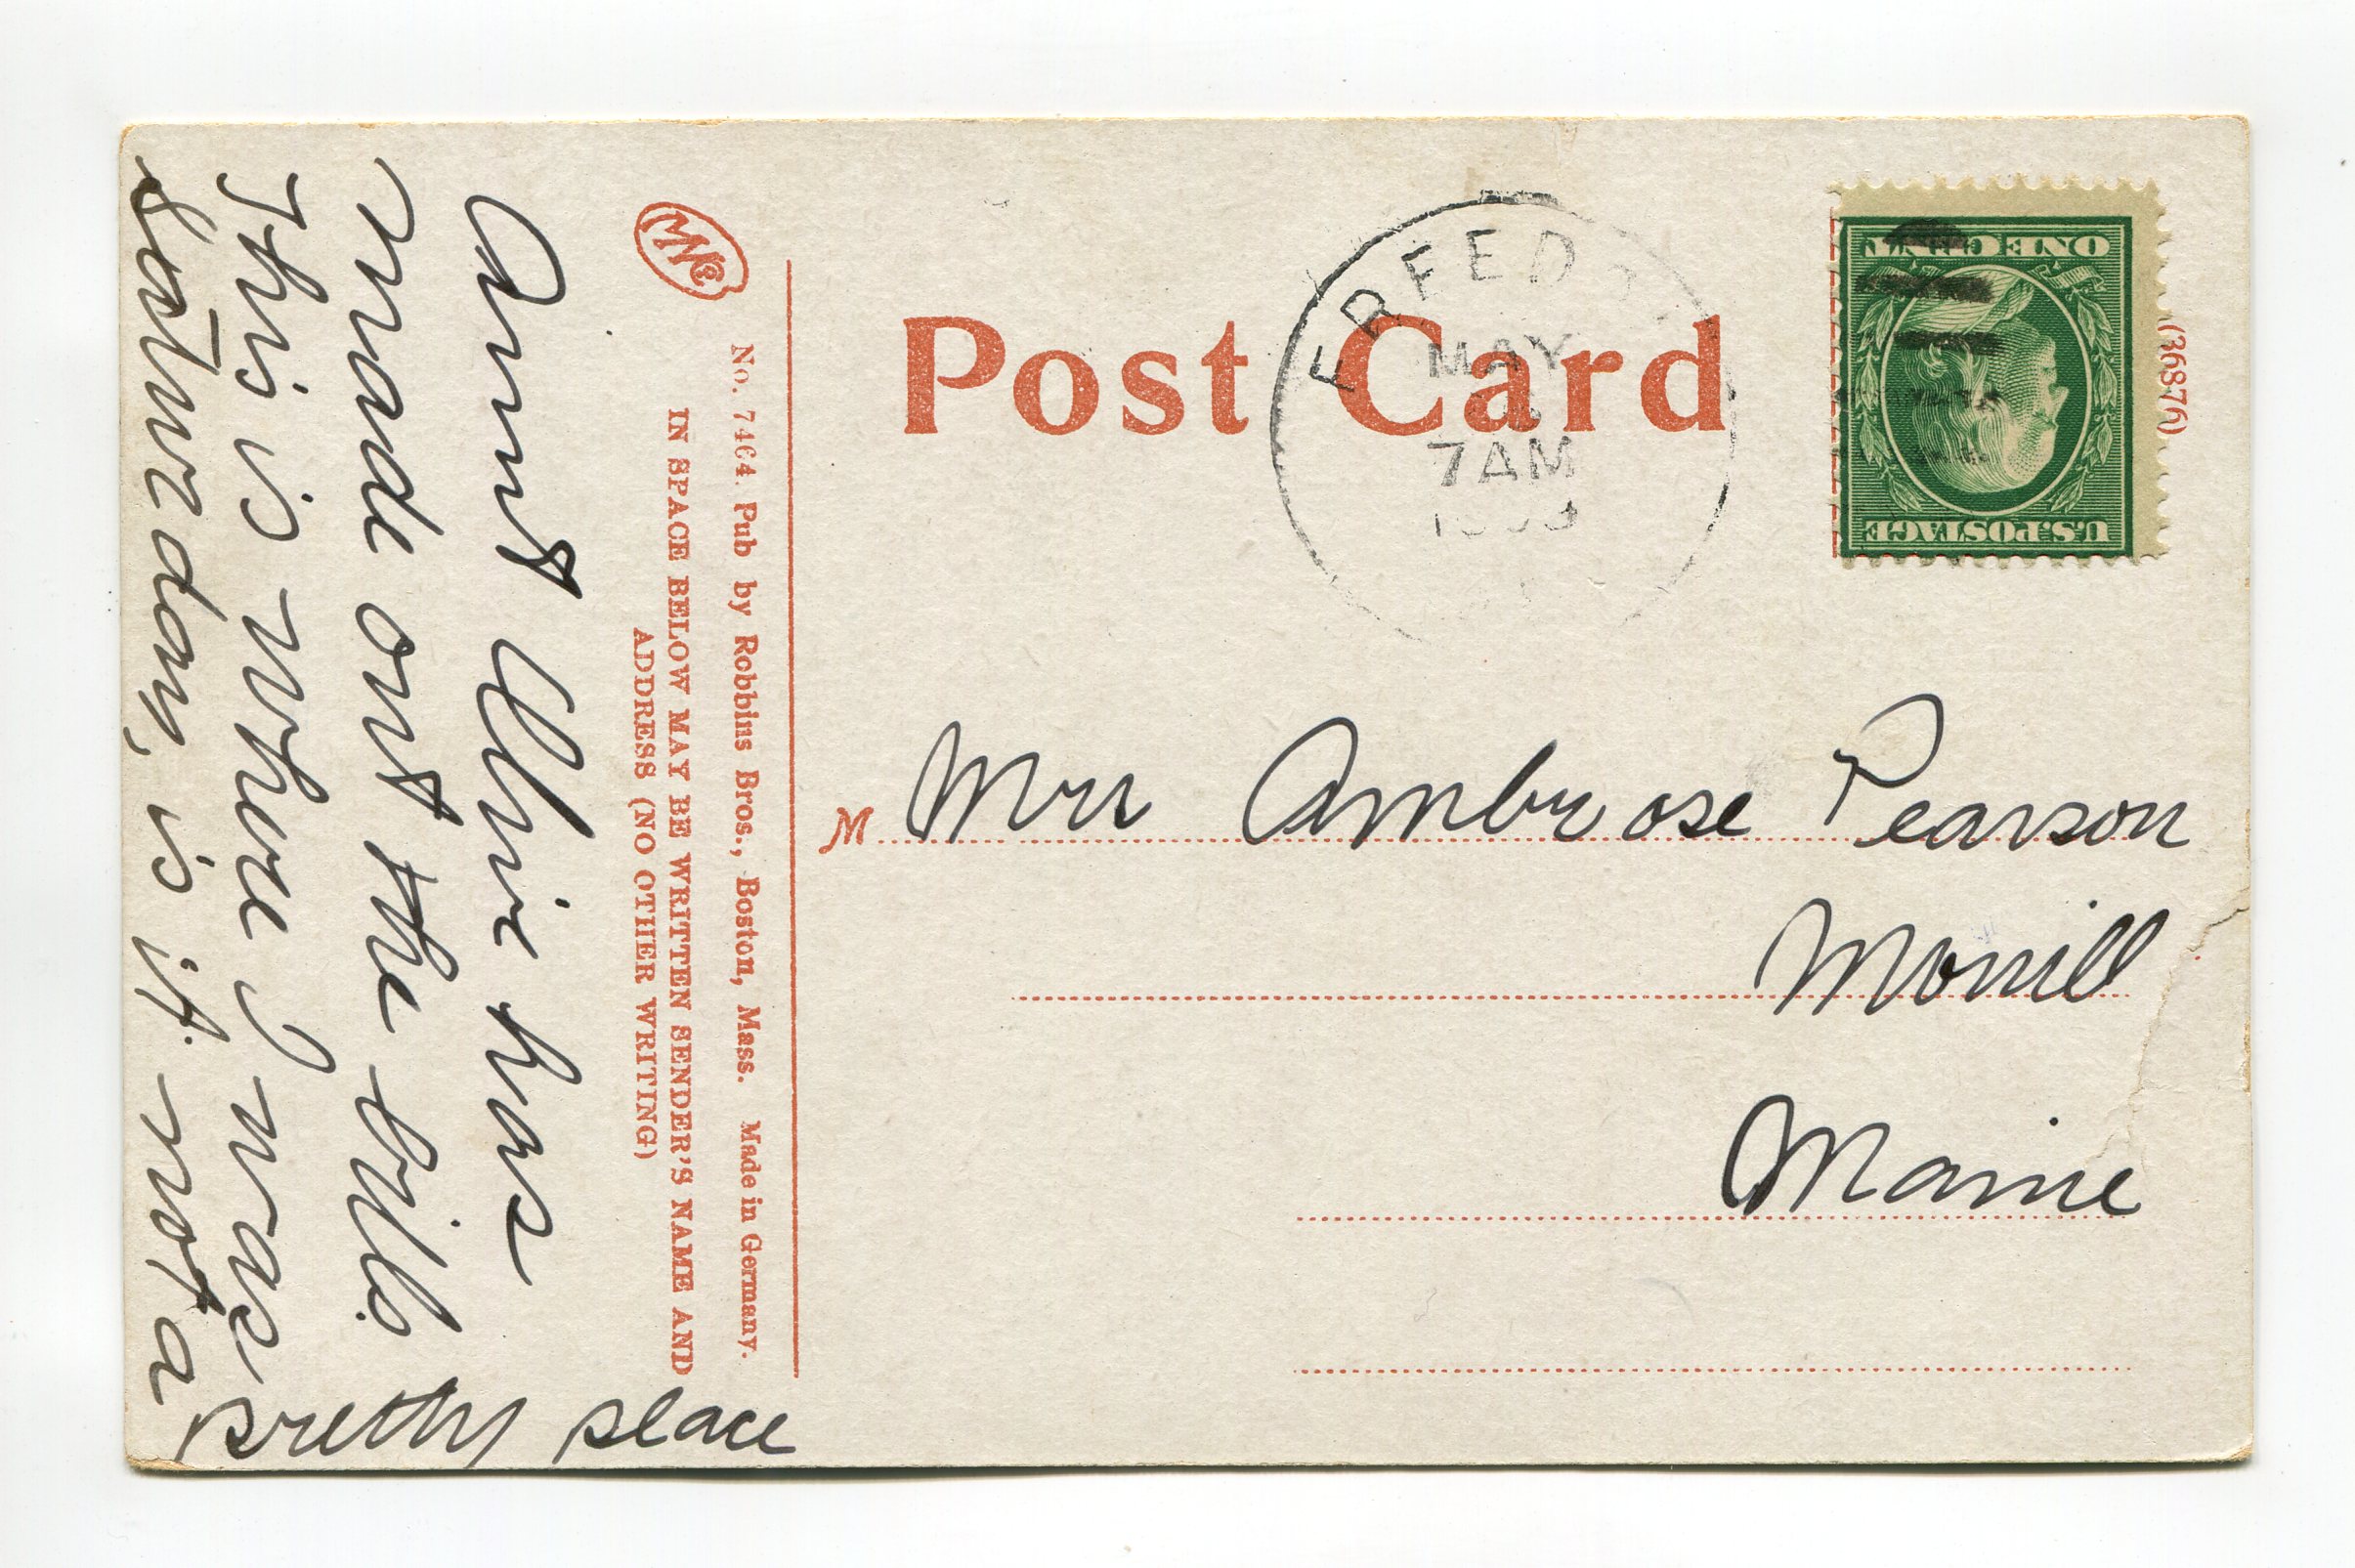 Post Card
FREEDO
MAY
7AM
ONE CENT
U.S. POSTAGE
(36876)
No. 7464. Pub by Robbins Bros., Boston, Mass. Made in Germany.
IN SPACE BELOW MAY BE WRITTEN SENDER'S NAME AND
ADDRESS (NO OTHER WRITING)
Aunt Olive has
made out the bills
This is where I was
Saturday, is it not a
pretty place
M Mrs Ambrose Pearson
Morrill
Maine